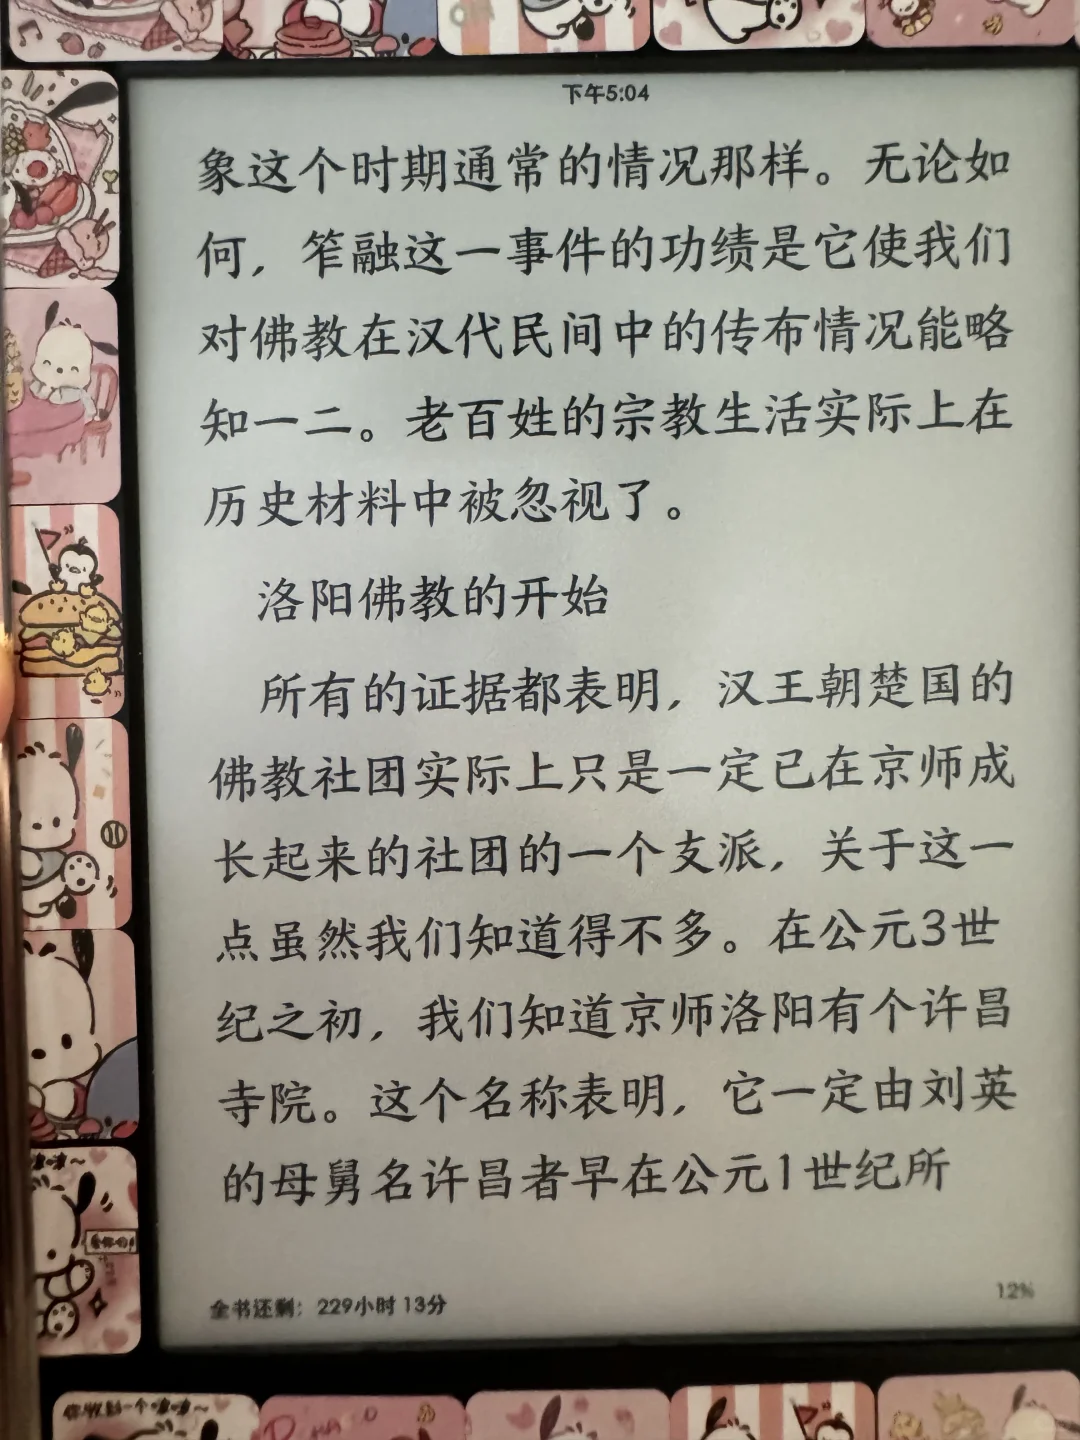 下午5:04
象这个时期通常的情况那样。无论如
何，笮融这一事件的功绩是它使我们
对佛教在汉代民间中的传布情况能略
知一二。老百姓的宗教生活实际上在
历史材料中被忽视了。
洛阳佛教的开始
所有的证据都表明，汉王朝楚国的
佛教社团实际上只是一定已在京师成
长起来的社团的一个支派，关于这一
点虽然我们知道得不多。在公元3世
纪之初，我们知道京师洛阳有个许昌
寺院。这个名称表明，它一定由刘英
的母舅名许昌者早在公元1世纪所
全书还剩：229小时 13分
12%